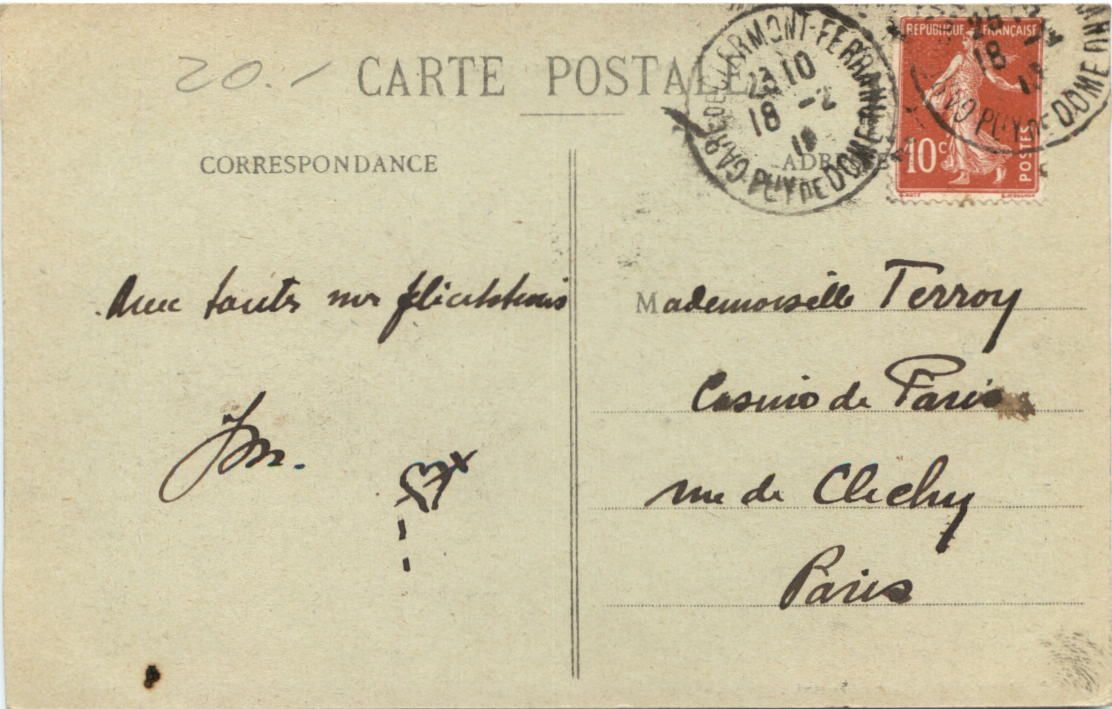 20.-
CARTE POSTALE
GARE DE CLERMONT-FERRAND
23 10
18 -2
PUY DE DOME
REPUBLIQUE FRANÇAISE
18
PUY DE DOME
10c
POSTES
CORRESPONDANCE
ADRESSE
Avec toutes mes félicitations
Mademoiselle Terroy
Casino de Paris
rue de Clichy
Paris